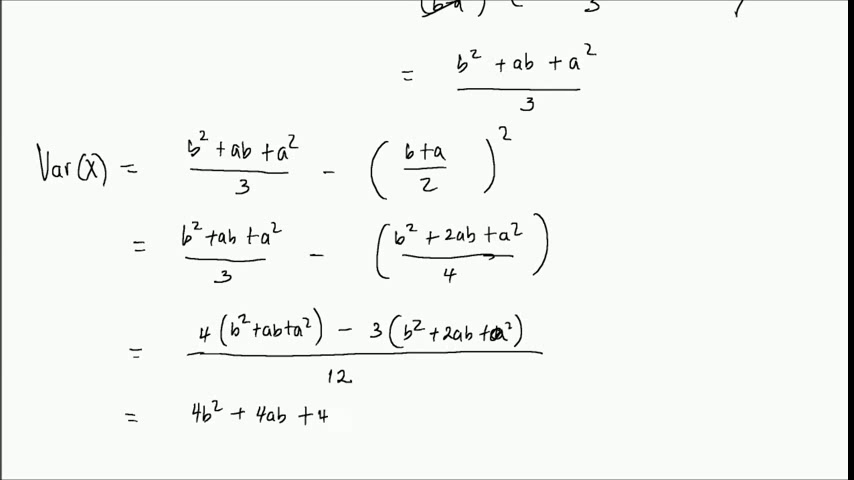 = b² + ab + a² / 3
Var(X) = b² + ab + a² / 3 - ( b+a / 2 )²
= b² + ab + a² / 3 - ( b² + 2ab + a² / 4 )
= 4(b² + ab + a²) - 3(b² + 2ab + a²) / 12
= 4b² + 4ab + 4